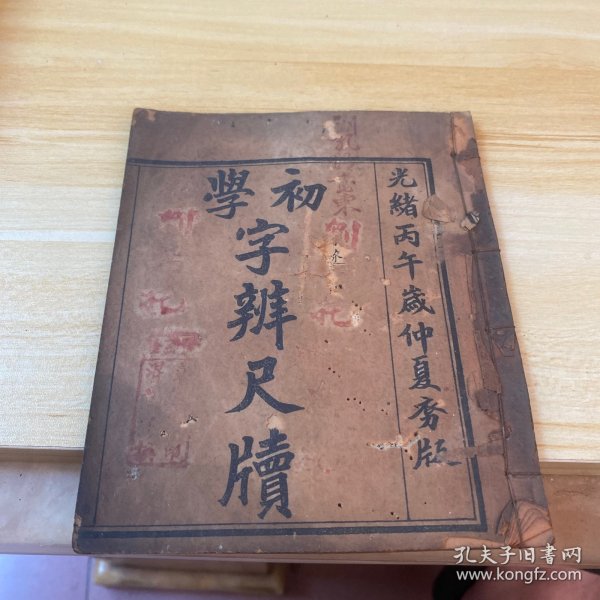 光緒丙午歲仲夏夯版
初學
字辦尺牘
東
孔夫子旧書网
www.kongfz.com